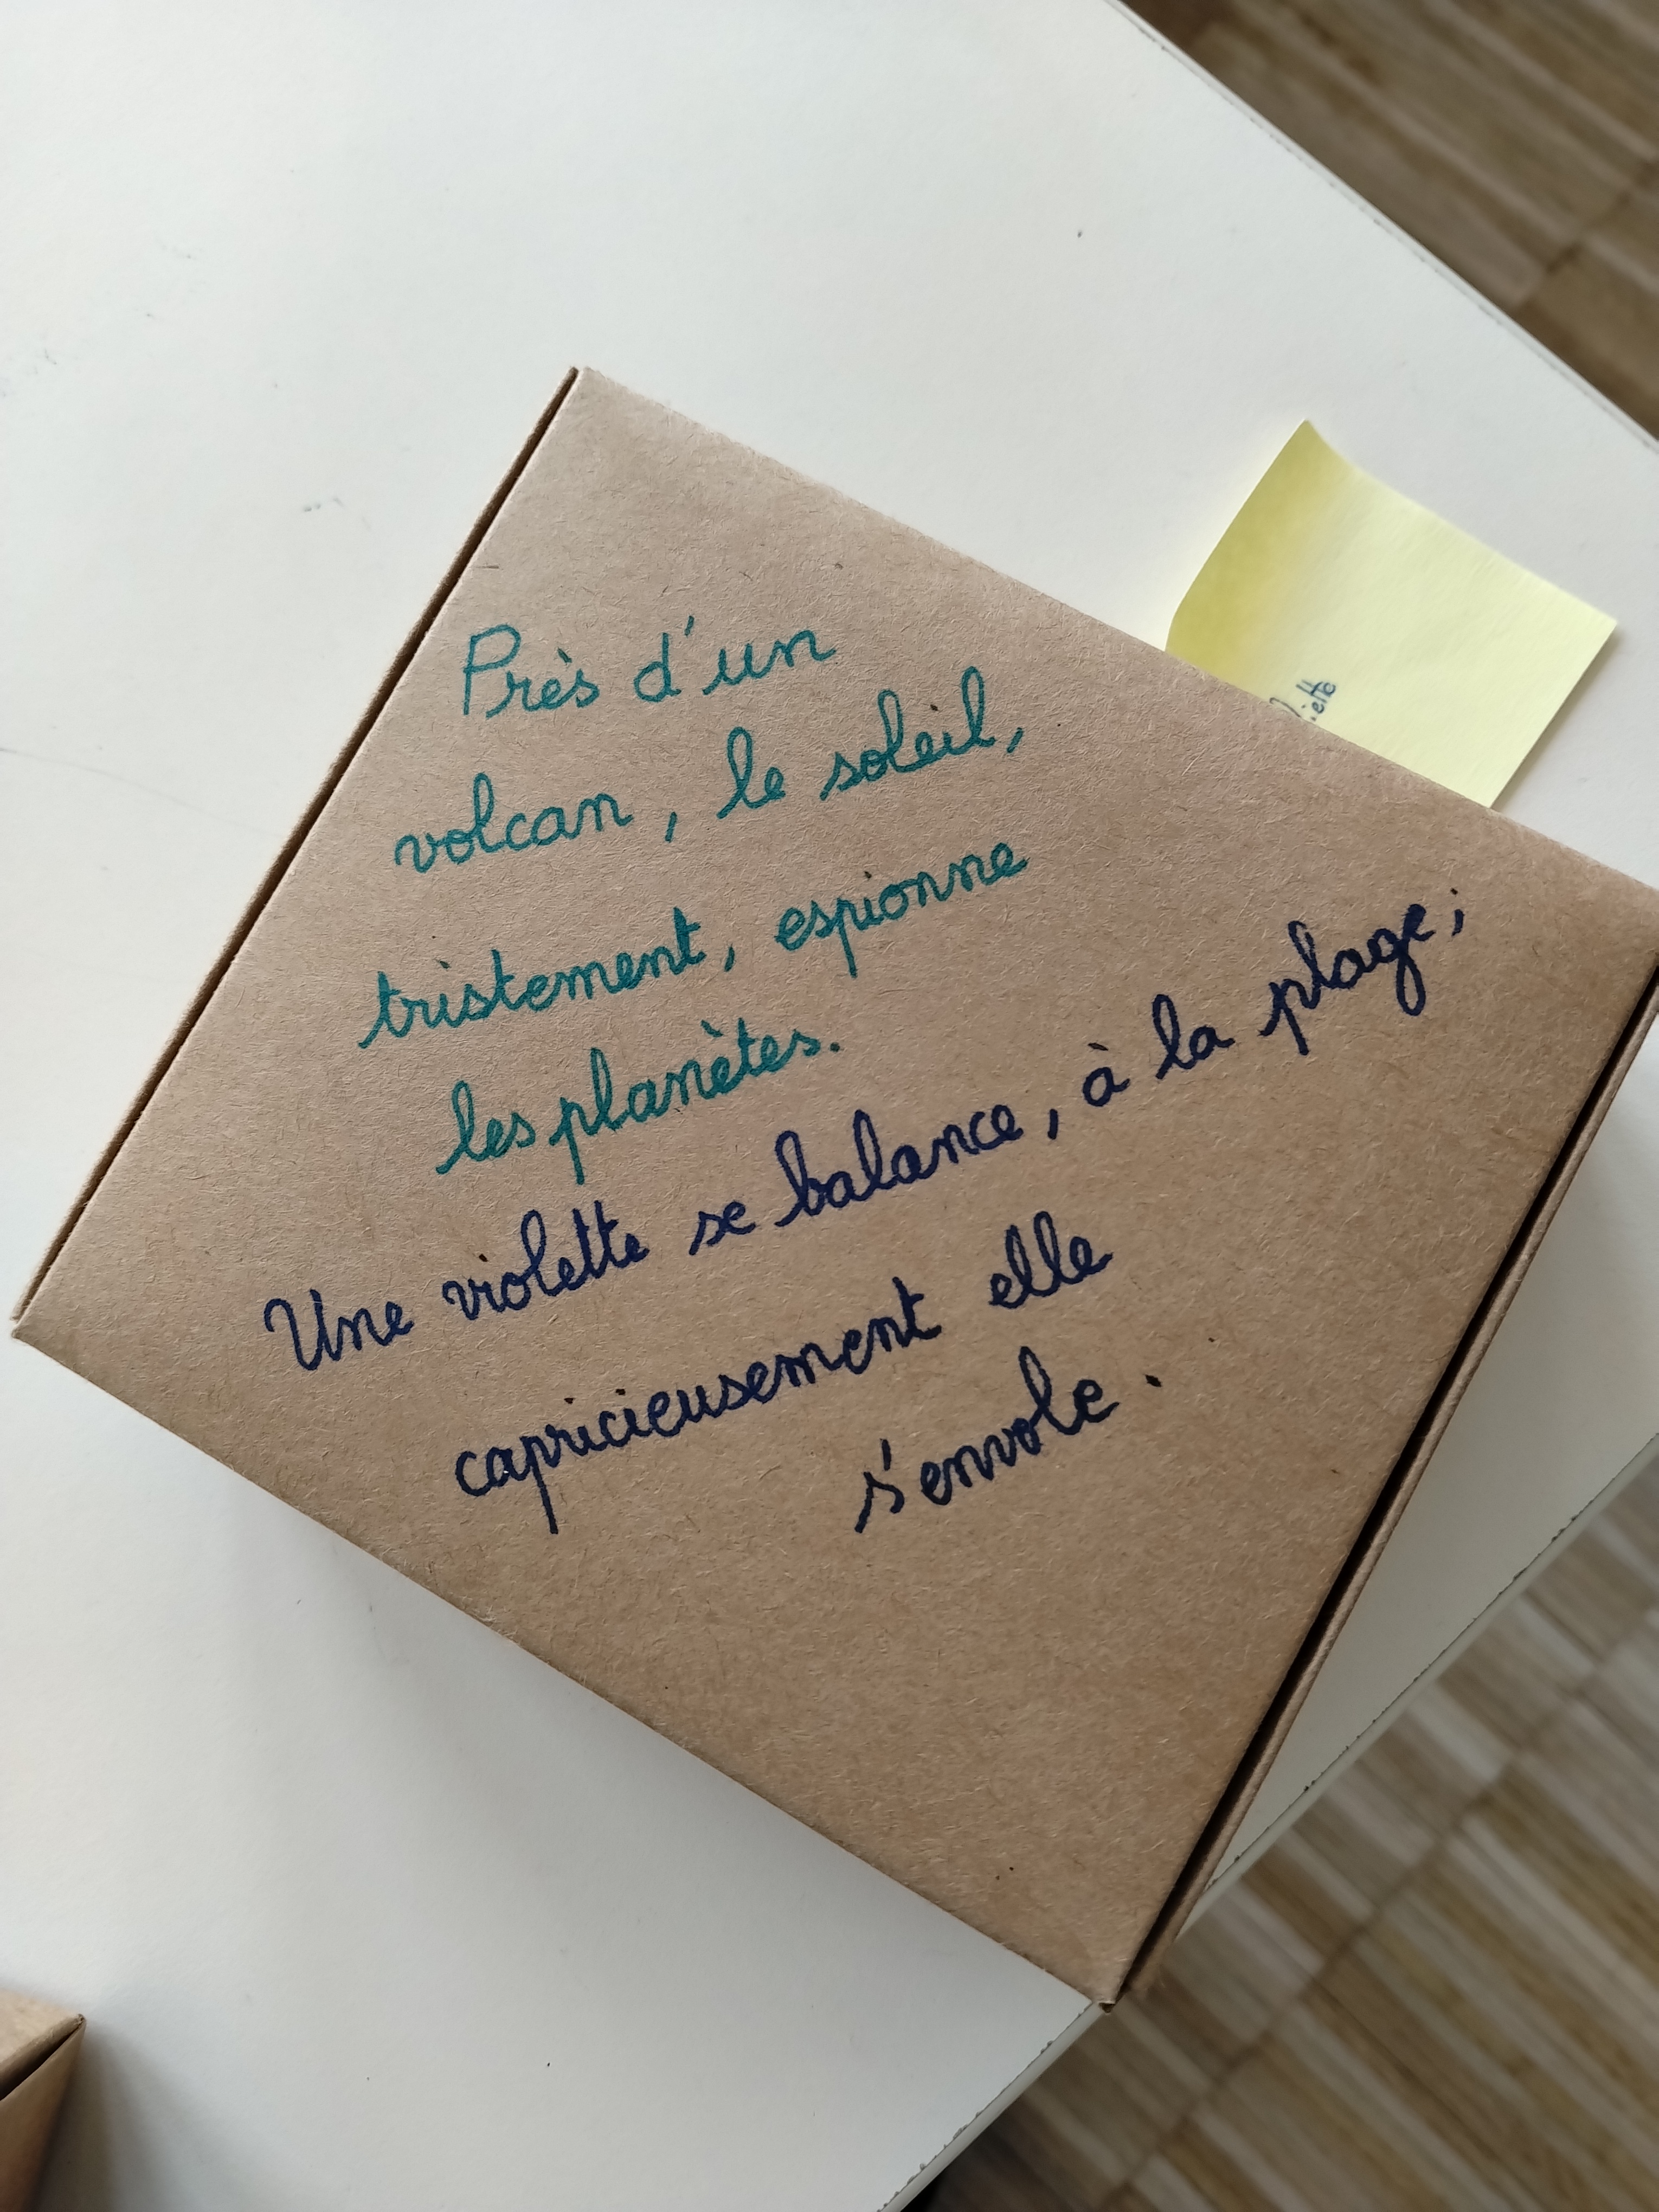 Près d'un
volcan, le soleil,
tristement, espionne
les planètes.
Une violette se balance, à la plage;
capricieusement elle
s'envole.